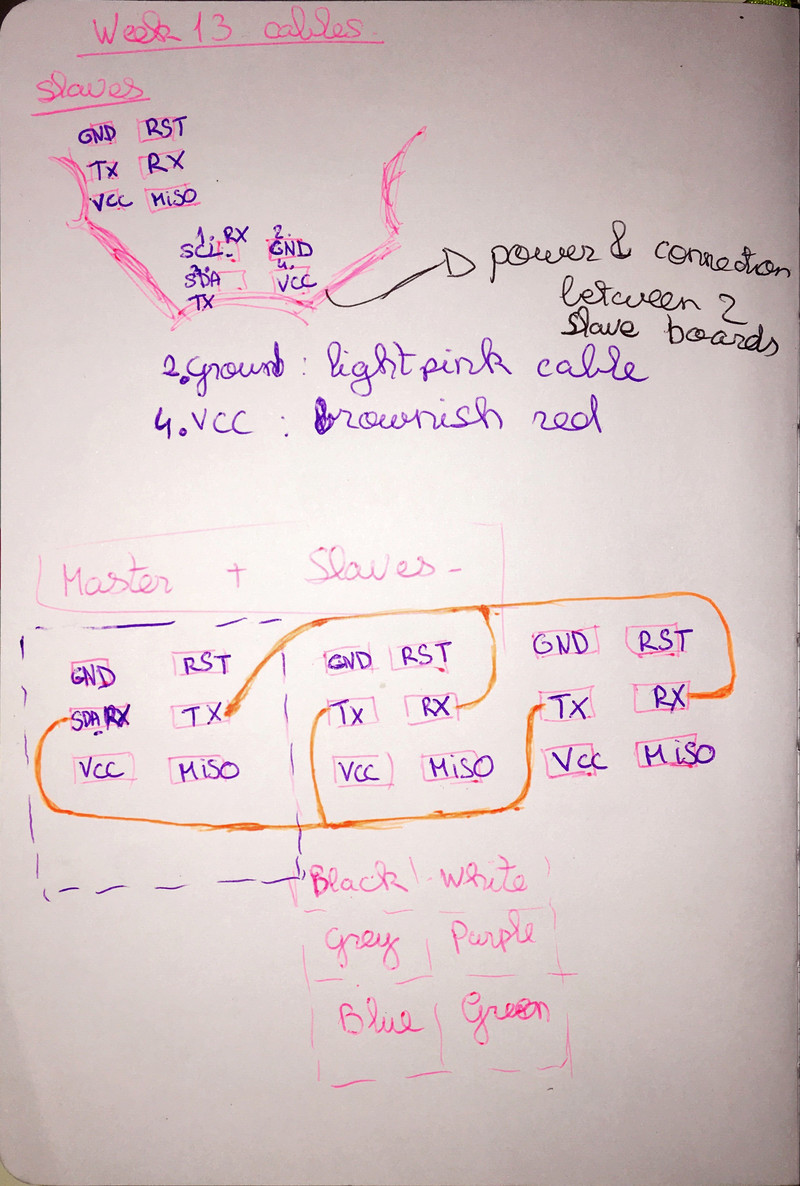 Week 13 cables
Slaves
GND RST
Tx RX
VCC MiSO
1. RX 2.
SCL GND
3. 4.
SDA VCC
TX
power & connection
between 2
slave boards
2. Ground : light pink cable
4. VCC : Brownish red
Master + Slaves -
GND RST GND RST GND RST
SDA RX TX TX RX TX RX
VCC MiSO VCC MiSO VCC MiSO
Black White
Grey Purple
Blue Green